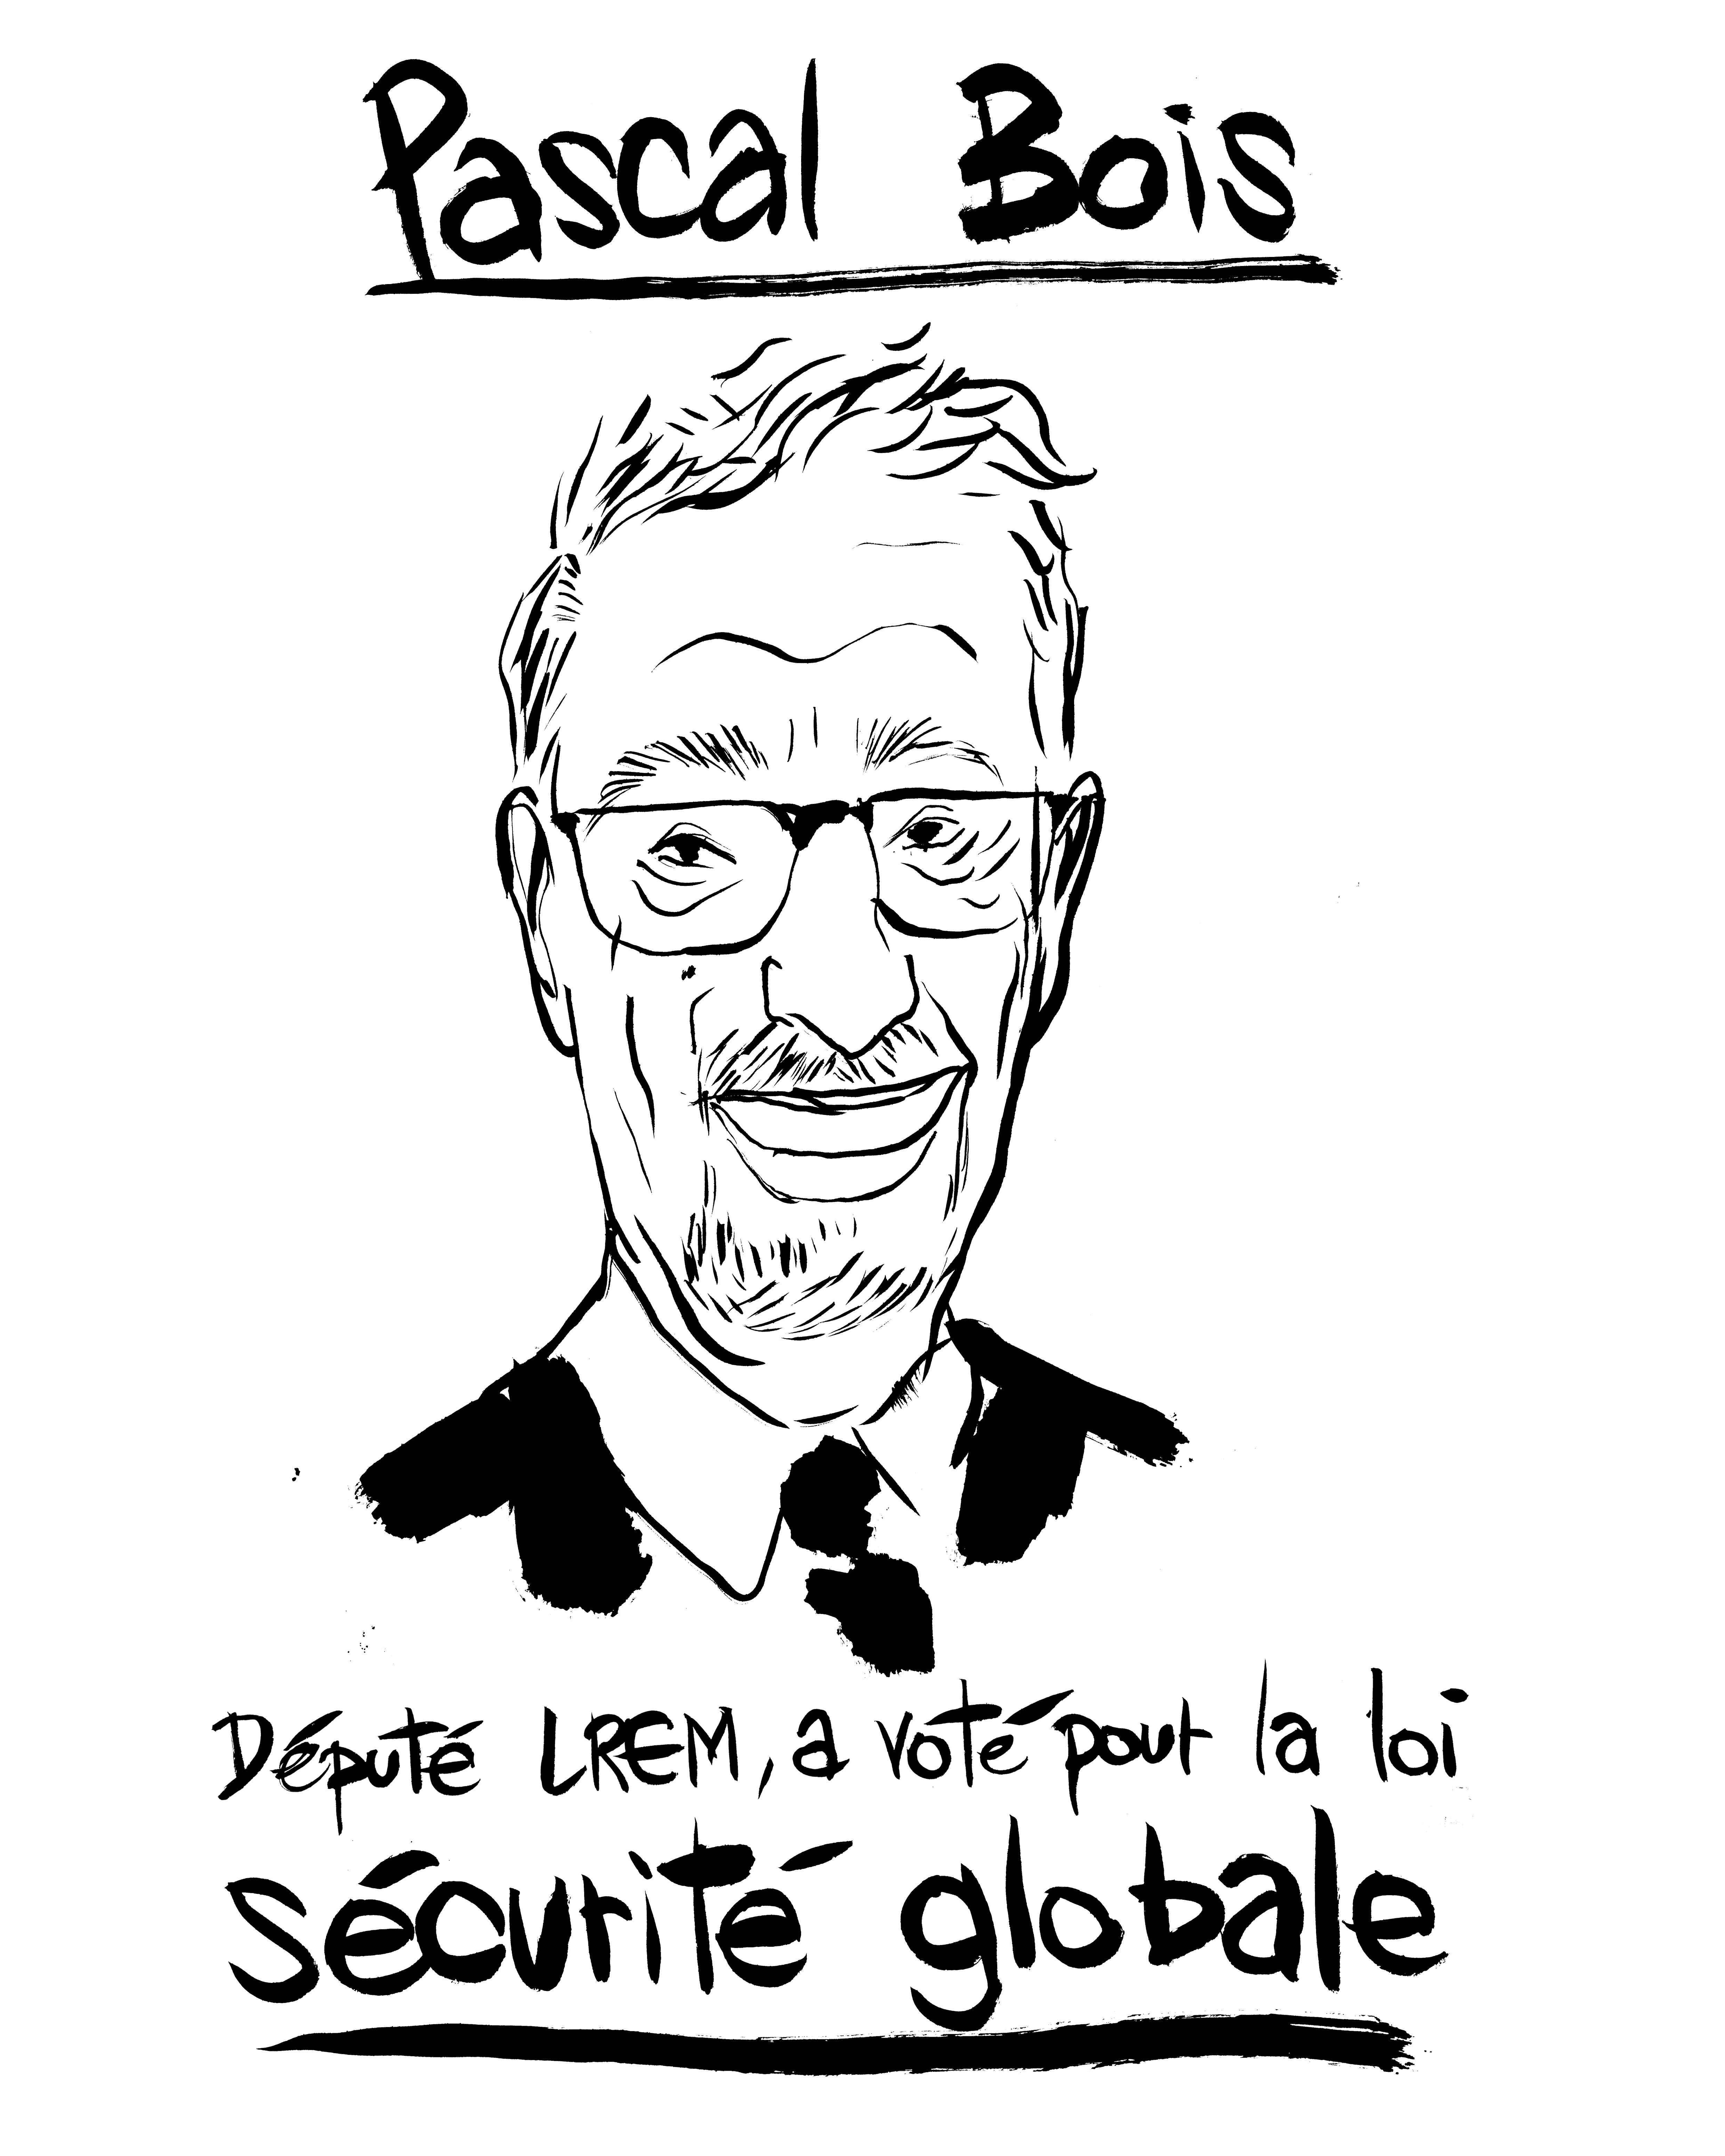 Pascal Bois
Députe LREM, a voté pour la loi
sécurité globale